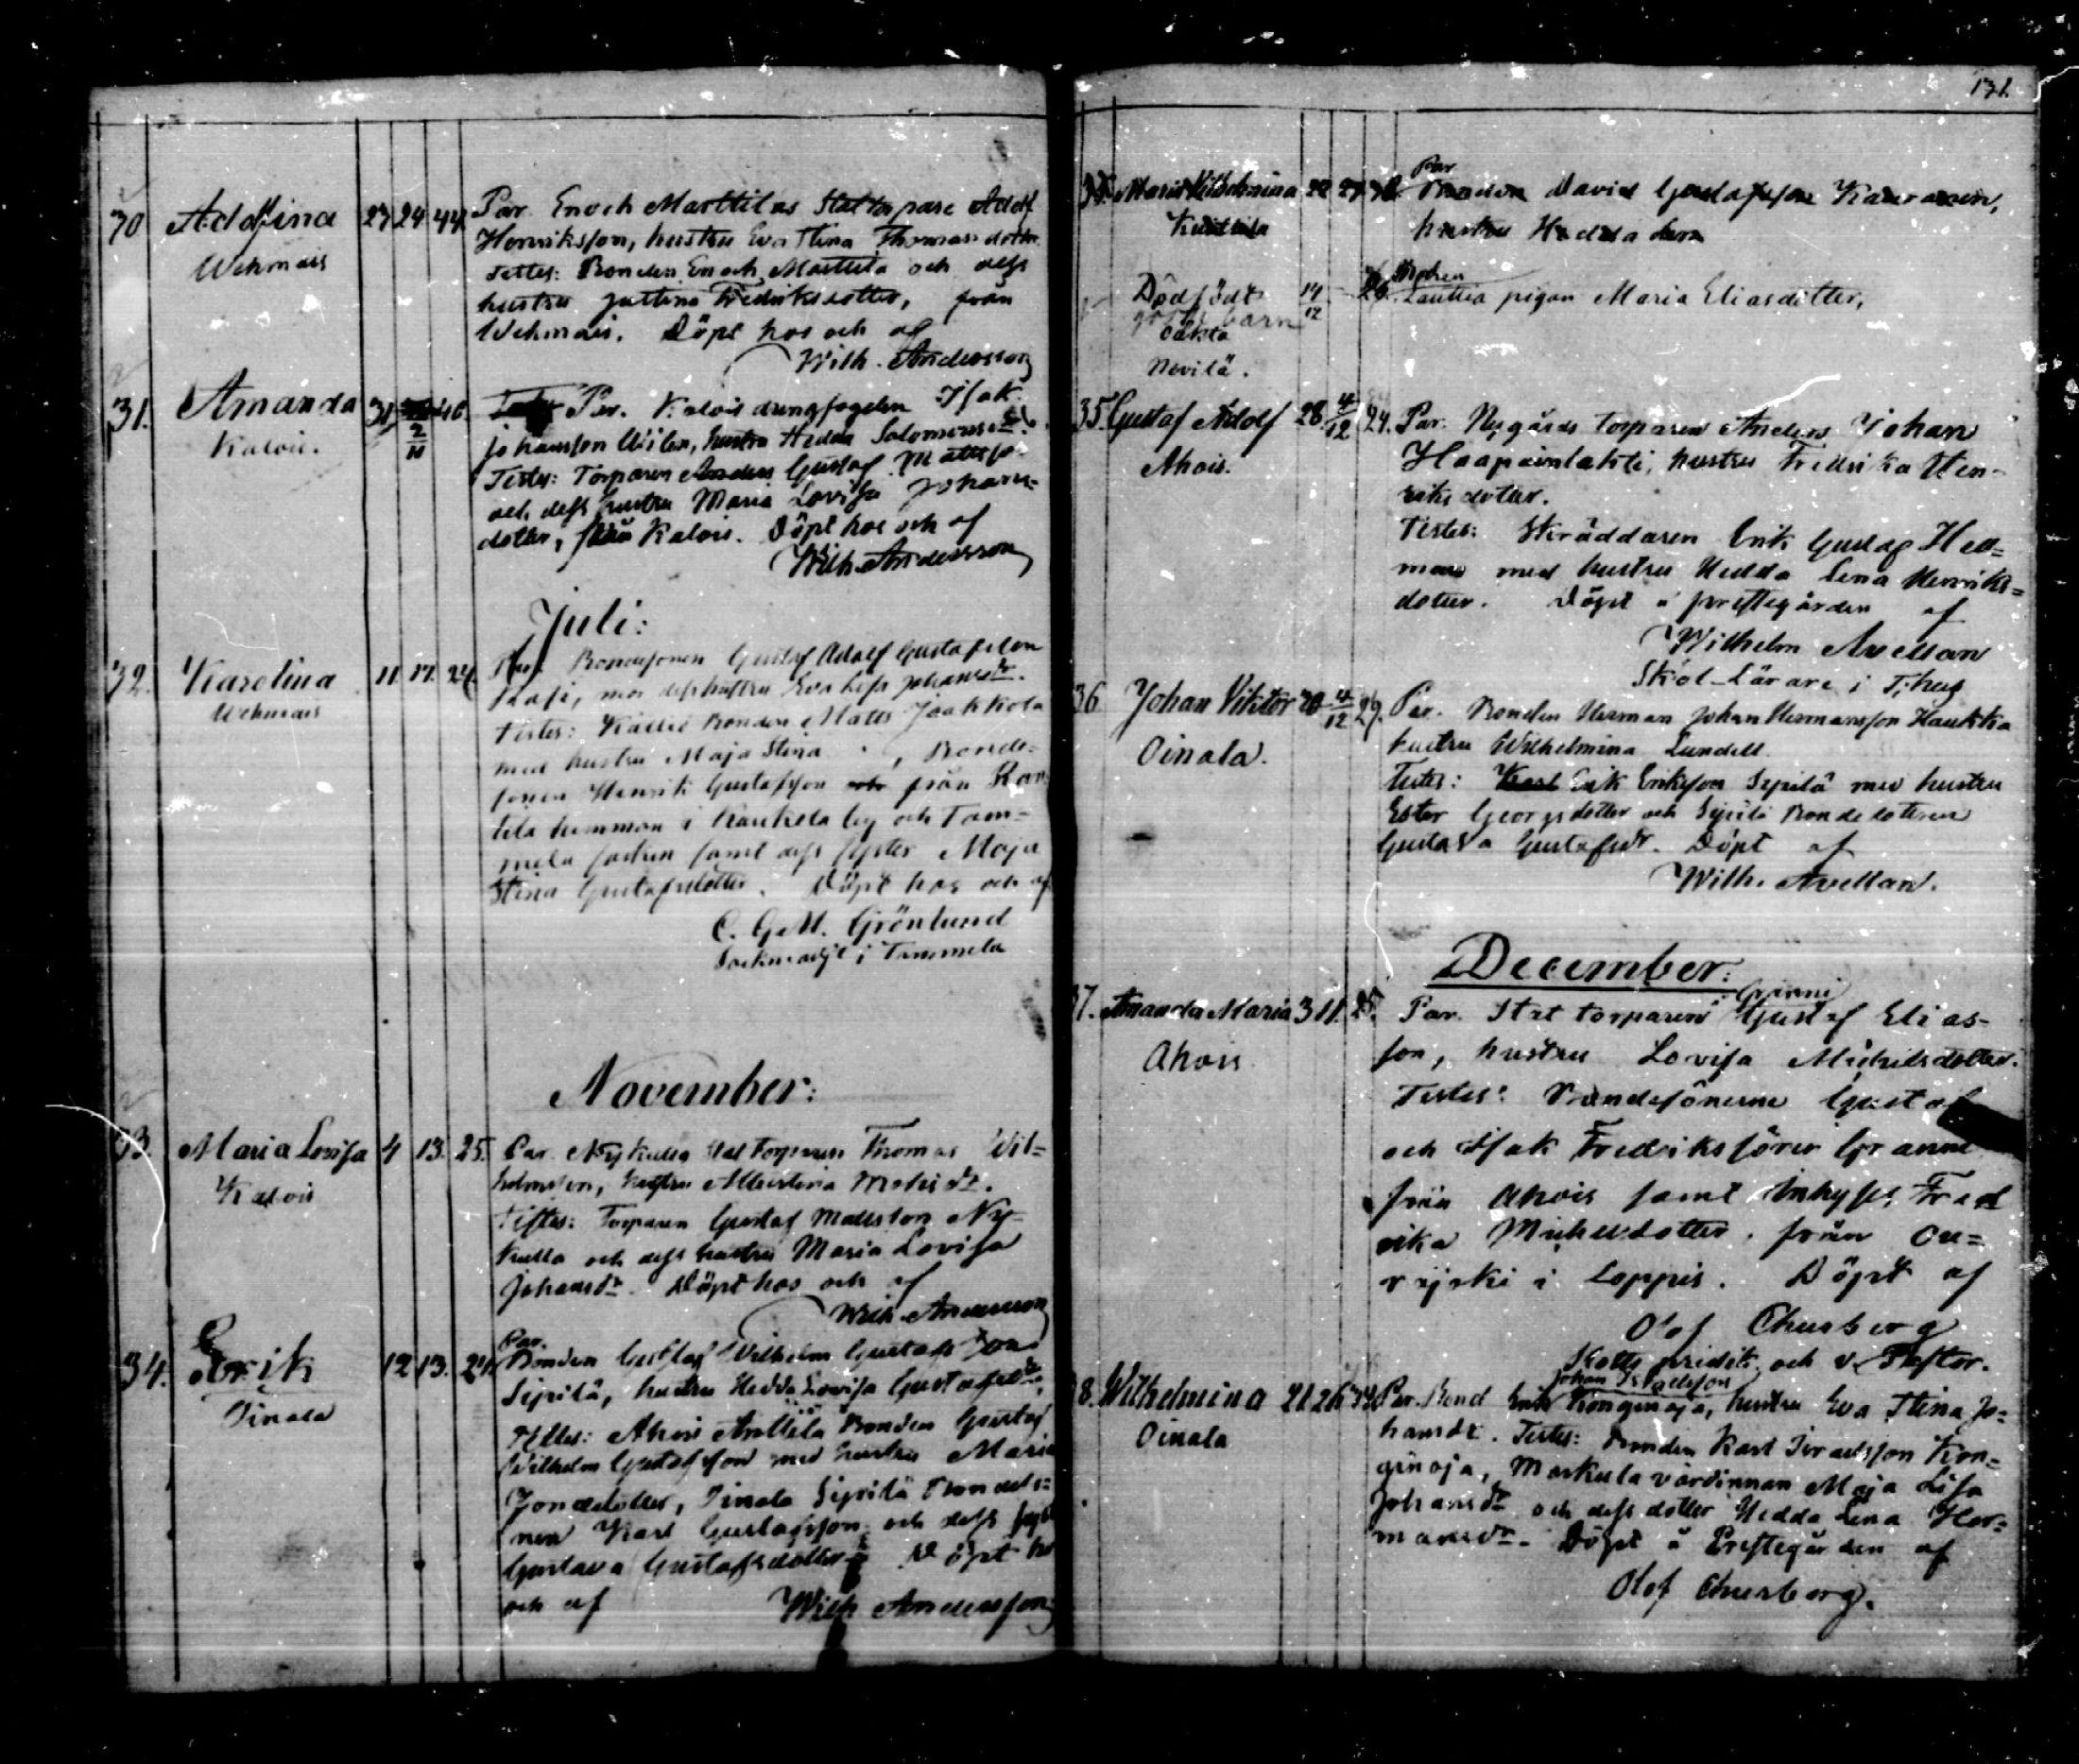 131.
30 Adolfina 23 24 44 Par. Enoch Marttilas Stattorpare Adolf
Wehmais Henriksson, hustru Eva Stina Thomasdotter
Testes: Bonden Enoch Marttila och dess
hustru Justina Fredriksdotter, från
Wehmais. Döpt hos och af
Wilh. Andersson
31. Amanda 31 2/11 46. Par. Kalois drengfogden Isak
Kalois. Johansson, hustru Hedda Salomonsdr.
Testes: Torparen Gustaf Mattss.
och dess hustru Maria Lovisa Johans-
dotter, från Kalois. Döpt hos och af
Wilh. Andersson
Juli:
32. Karolina 11. 17. 24 Par. Bondesonen Gustaf Adolf Gustafsson
Wehmais mor dess hustru Eva Lisa Johansdr.
Testes: Bonden Matts Jaakkola
med hustru Maja Stina , Bonde-
sonen Henrik Gustafsson från
hemman i Kaukola by och Tam-
mela socken samt dess syster Maja
Stina Gustafsdotter. Döpt hos och af
C. G. M. Grönlund
Sockneadj. i Tammela
November:
33. Maria Lovisa 4 13. 25. Par. Nykulla Stattorparen Thomas Wil-
Kalois helmsson, hustru Albertina Matsdr.
Testes: Torparen Gustaf Mattsson Ny-
kulla och dess hustru Maria Lovisa
Johansdr. Döpt hos och af
Wilh. Andersson
34. Erik 12 13. 24 Par. Bonden Gustaf Wilhelm Gustafsson
Oinala Sipilä, hustru Hedda Lovisa Gustafsdr.
Testes: Ahois Anttila Bonden Gustaf
Wilhelm Gustafsson med hustru Maria
Jonaedotter, Oinala Sipilä Bondeso-
nen Karl Gustafsson och dess syst
Gustava Gustafsdotter Döpt ho
och af Wilh. Andersson
Maria Wilhelmina 22 27 Par. Bonden David Gustafsson
hustru Hedda Lena
Dödfödt 14/12 Modren Lauttia pigan Maria Eliasdotter,
barn
Nevilä.
35. Gustaf Adolf 28 4/12 24. Par. Nygårds torparen Anders Johan
Ahois. Haapainlahti, hustru Fredrika Hen-
riksdotter.
Testes: Skräddaren Erik Gustaf Hed-
man med hustru Hedda Lena Henriks-
dotter. Döpt å prestegården af
Wilhelm Avellan
Skol-Lärare i T.hus
36 Johan Viktor 30 4/12 29. Par. Bonden Herman Johan Hermansson Haukka
Oinala. hustru Wilhelmina Lundell.
Testes: Erik Eriksson Sipilä med hustru
Ester Georgsdotter och Sipilä Bondedotteren
Gustava Gustafsdr. Döpt af
Wilh. Avellan.
December:
37. Amanda Maria 3 11. 25. Par. Stattorparen Gustaf Elias-
Ahois son, hustru Lovisa Michelsdotter.
Testes: Bondesönerne Gustaf
och Isak Fredrikssöner Granni
från Ahois samt Inhyses Fred
rika Michelsdotter. från
i Loppis. Döpt af
Olof Churberg
och v. Pastor.
38. Wilhelmina 21 26 34 Par. Bond Johan Israelsson Konginoja, hustru Eva Stina Jo-
Oinala hansdr. Testes: Bonden Karl Israelsson Kon-
ginoja, Markula värdinnan Maja Lisa
Johansdr och dess dotter Hedda Lena Her-
mansdr. Döpt å Prestegården af
Olof Churberg.